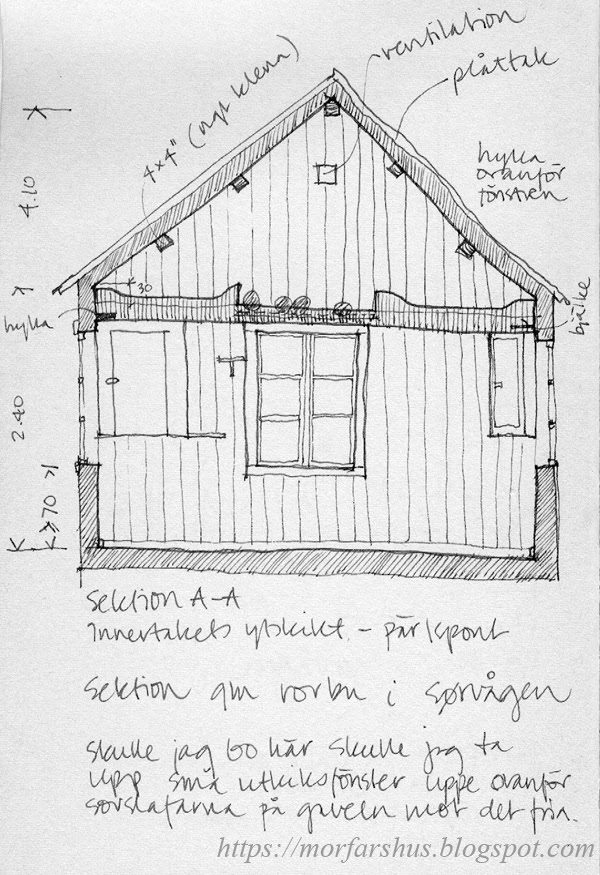 ventilation
plåttak
4x4" (ngt klena)
hylla
ovanför
fönstren
4.10
30
hylla
bjälke
2.40
70
Sektion A-A
Innertakets ytskikt - pärlspont
Sektion gm rorbu i Sørvågen
Skulle jag bo här skulle jag ta
upp små utkiksfönster uppe ovanför
sovslafarna på gaveln mot det fria.
https://morfarshus.blogspot.com